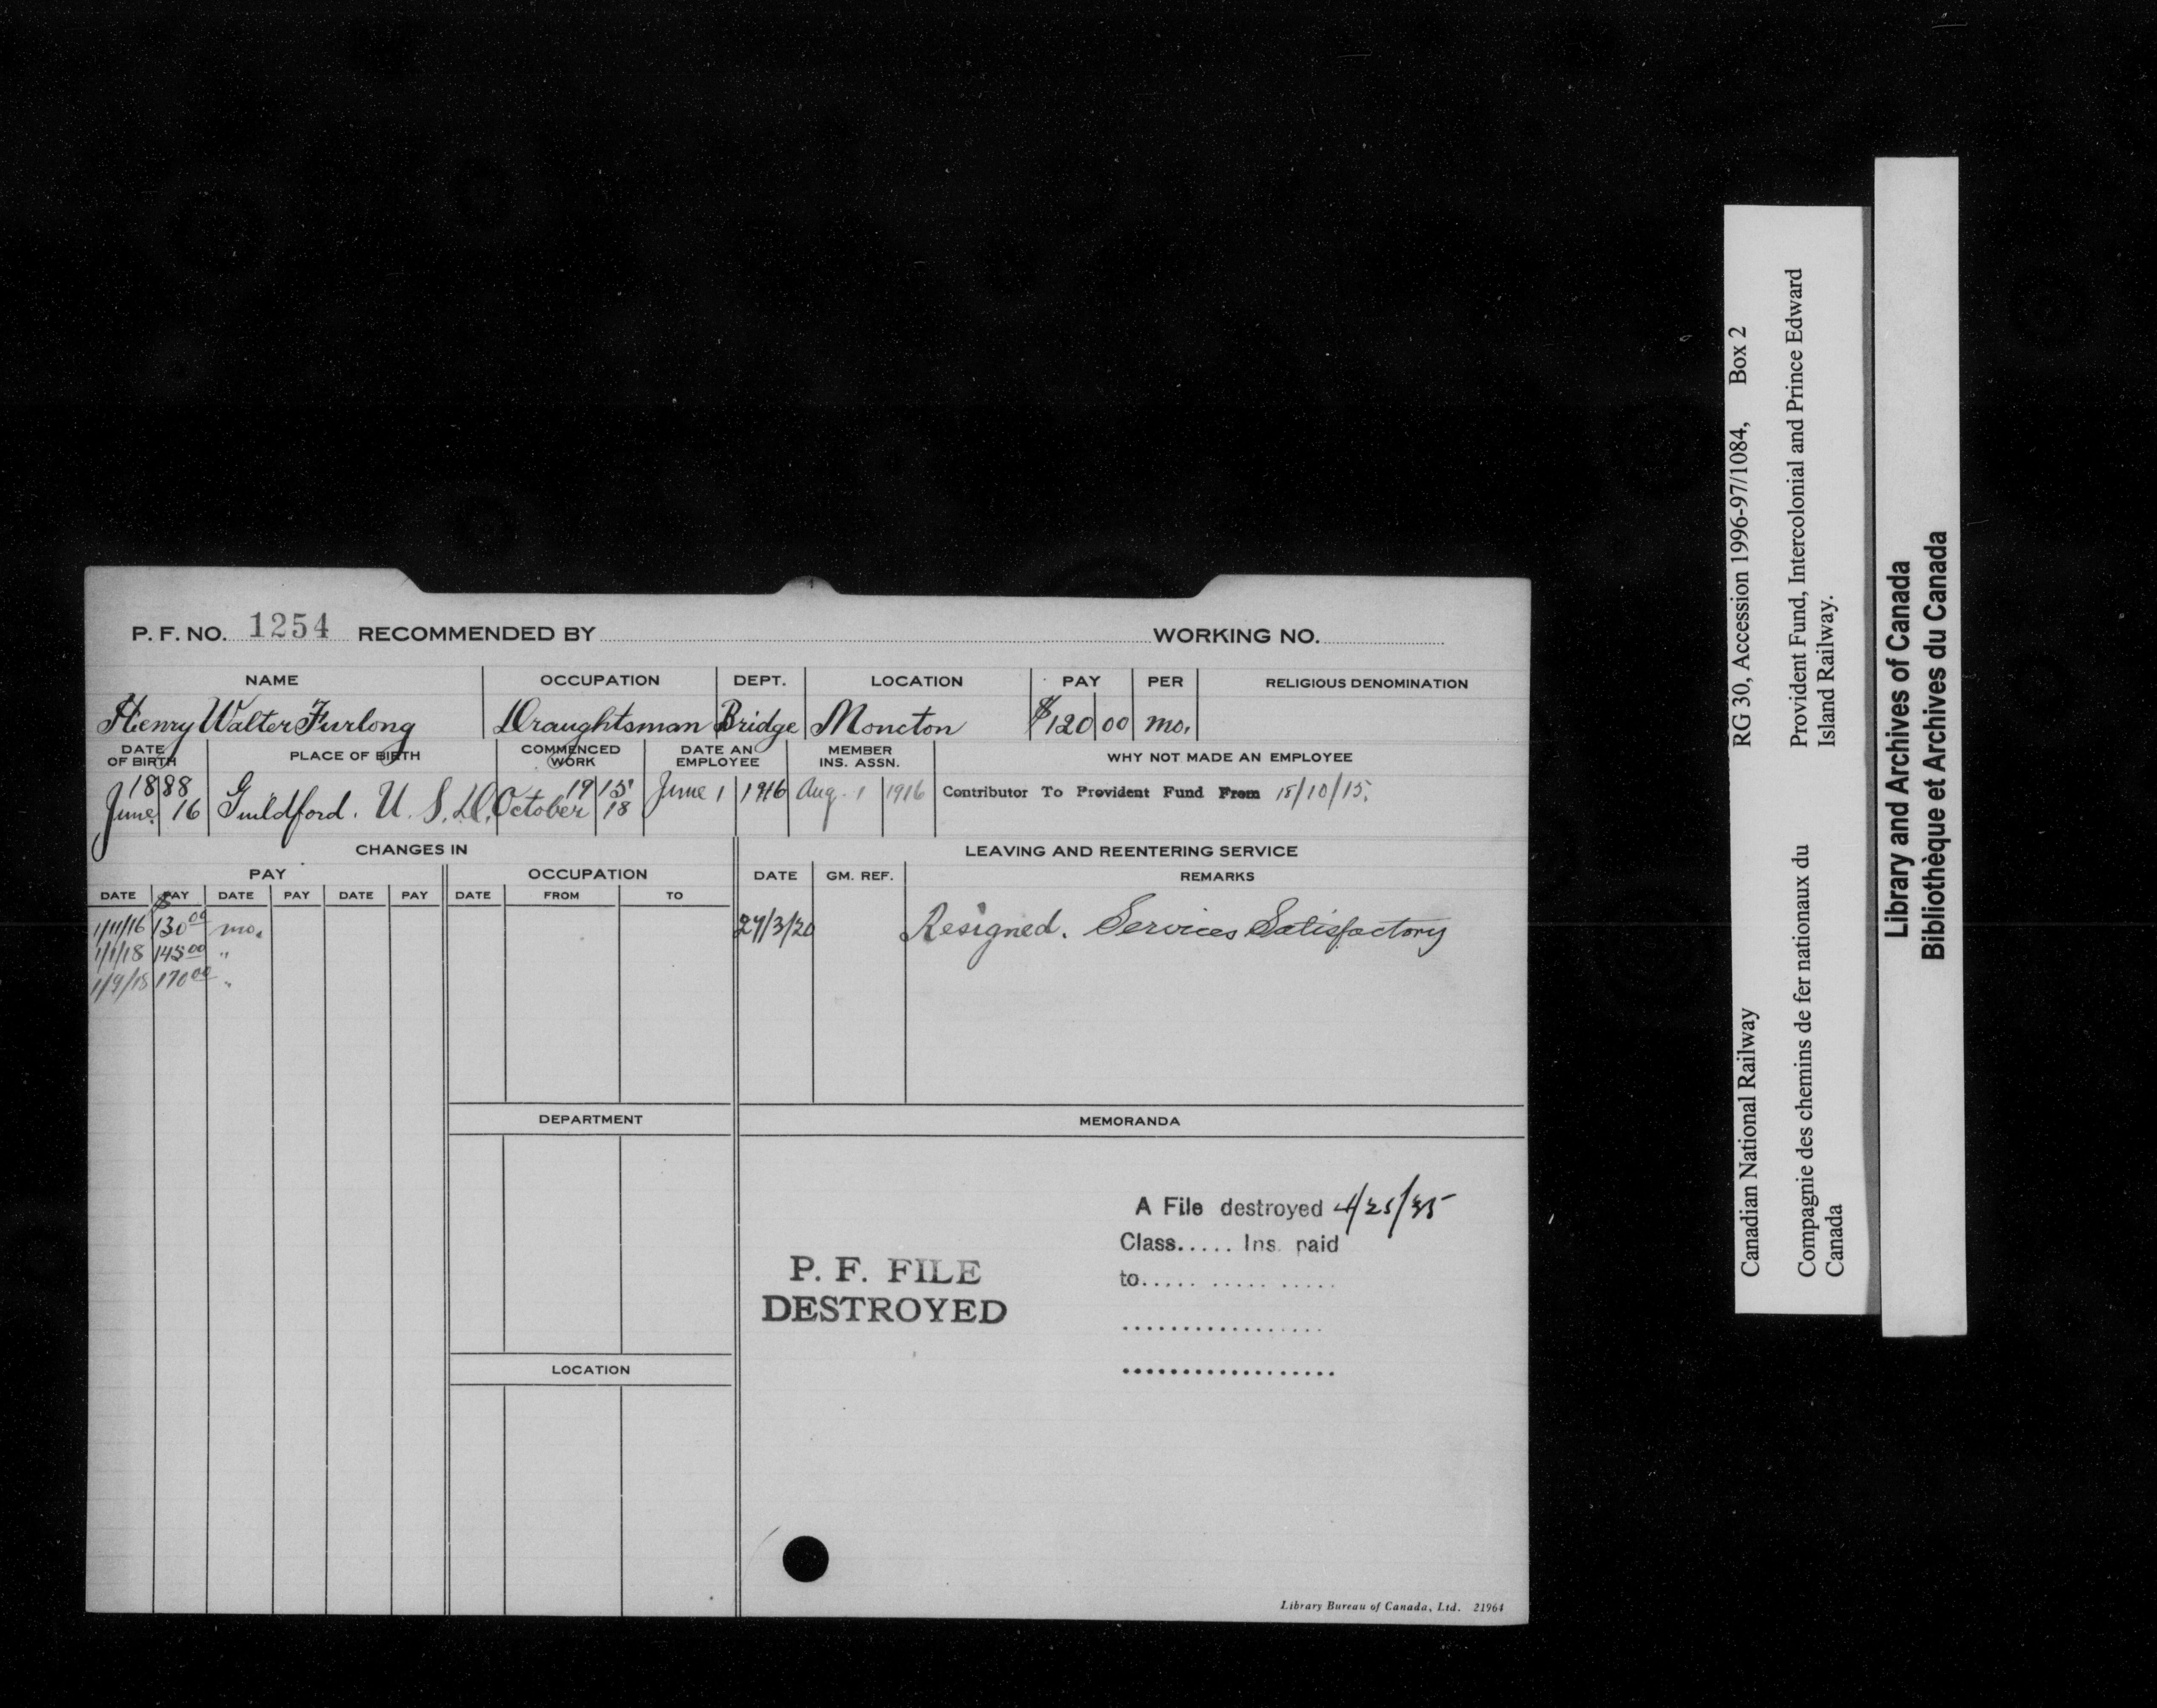 P. F. NO. 1254 RECOMMENDED BY WORKING NO.
NAME OCCUPATION DEPT. LOCATION PAY PER RELIGIOUS DENOMINATION
Henry Walter Furlong Draughtsman Bridge Moncton $120 00 mo.
DATE OF BIRTH PLACE OF BIRTH COMMENCED WORK DATE AN EMPLOYEE MEMBER INS. ASSN. WHY NOT MADE AN EMPLOYEE
1888 19 15
June 16 Guildford. U. S. October 18 June 1 1916 Aug. 1 1916 Contributor To Provident Fund From 18/10/15.
CHANGES IN LEAVING AND REENTERING SERVICE
PAY OCCUPATION DATE GM. REF. REMARKS
DATE PAY DATE PAY DATE PAY DATE FROM TO
1/11/16 $130 00 mo. 27/3/20 Resigned. Services Satisfactory
1/1/18 145 00 "
1/9/18 170 00 "
DEPARTMENT MEMORANDA
A File destroyed 4/25/35
Class..... Ins. paid
to..... ..... .....
P. F. FILE
DESTROYED
LOCATION
Library Bureau of Canada, Ltd. 21964
Canadian National Railway RG 30, Accession 1996-97/1084, Box 2
Compagnie des chemins de fer nationaux du Canada Provident Fund, Intercolonial and Prince Edward Island Railway.
Library and Archives of Canada
Bibliothèque et Archives du Canada